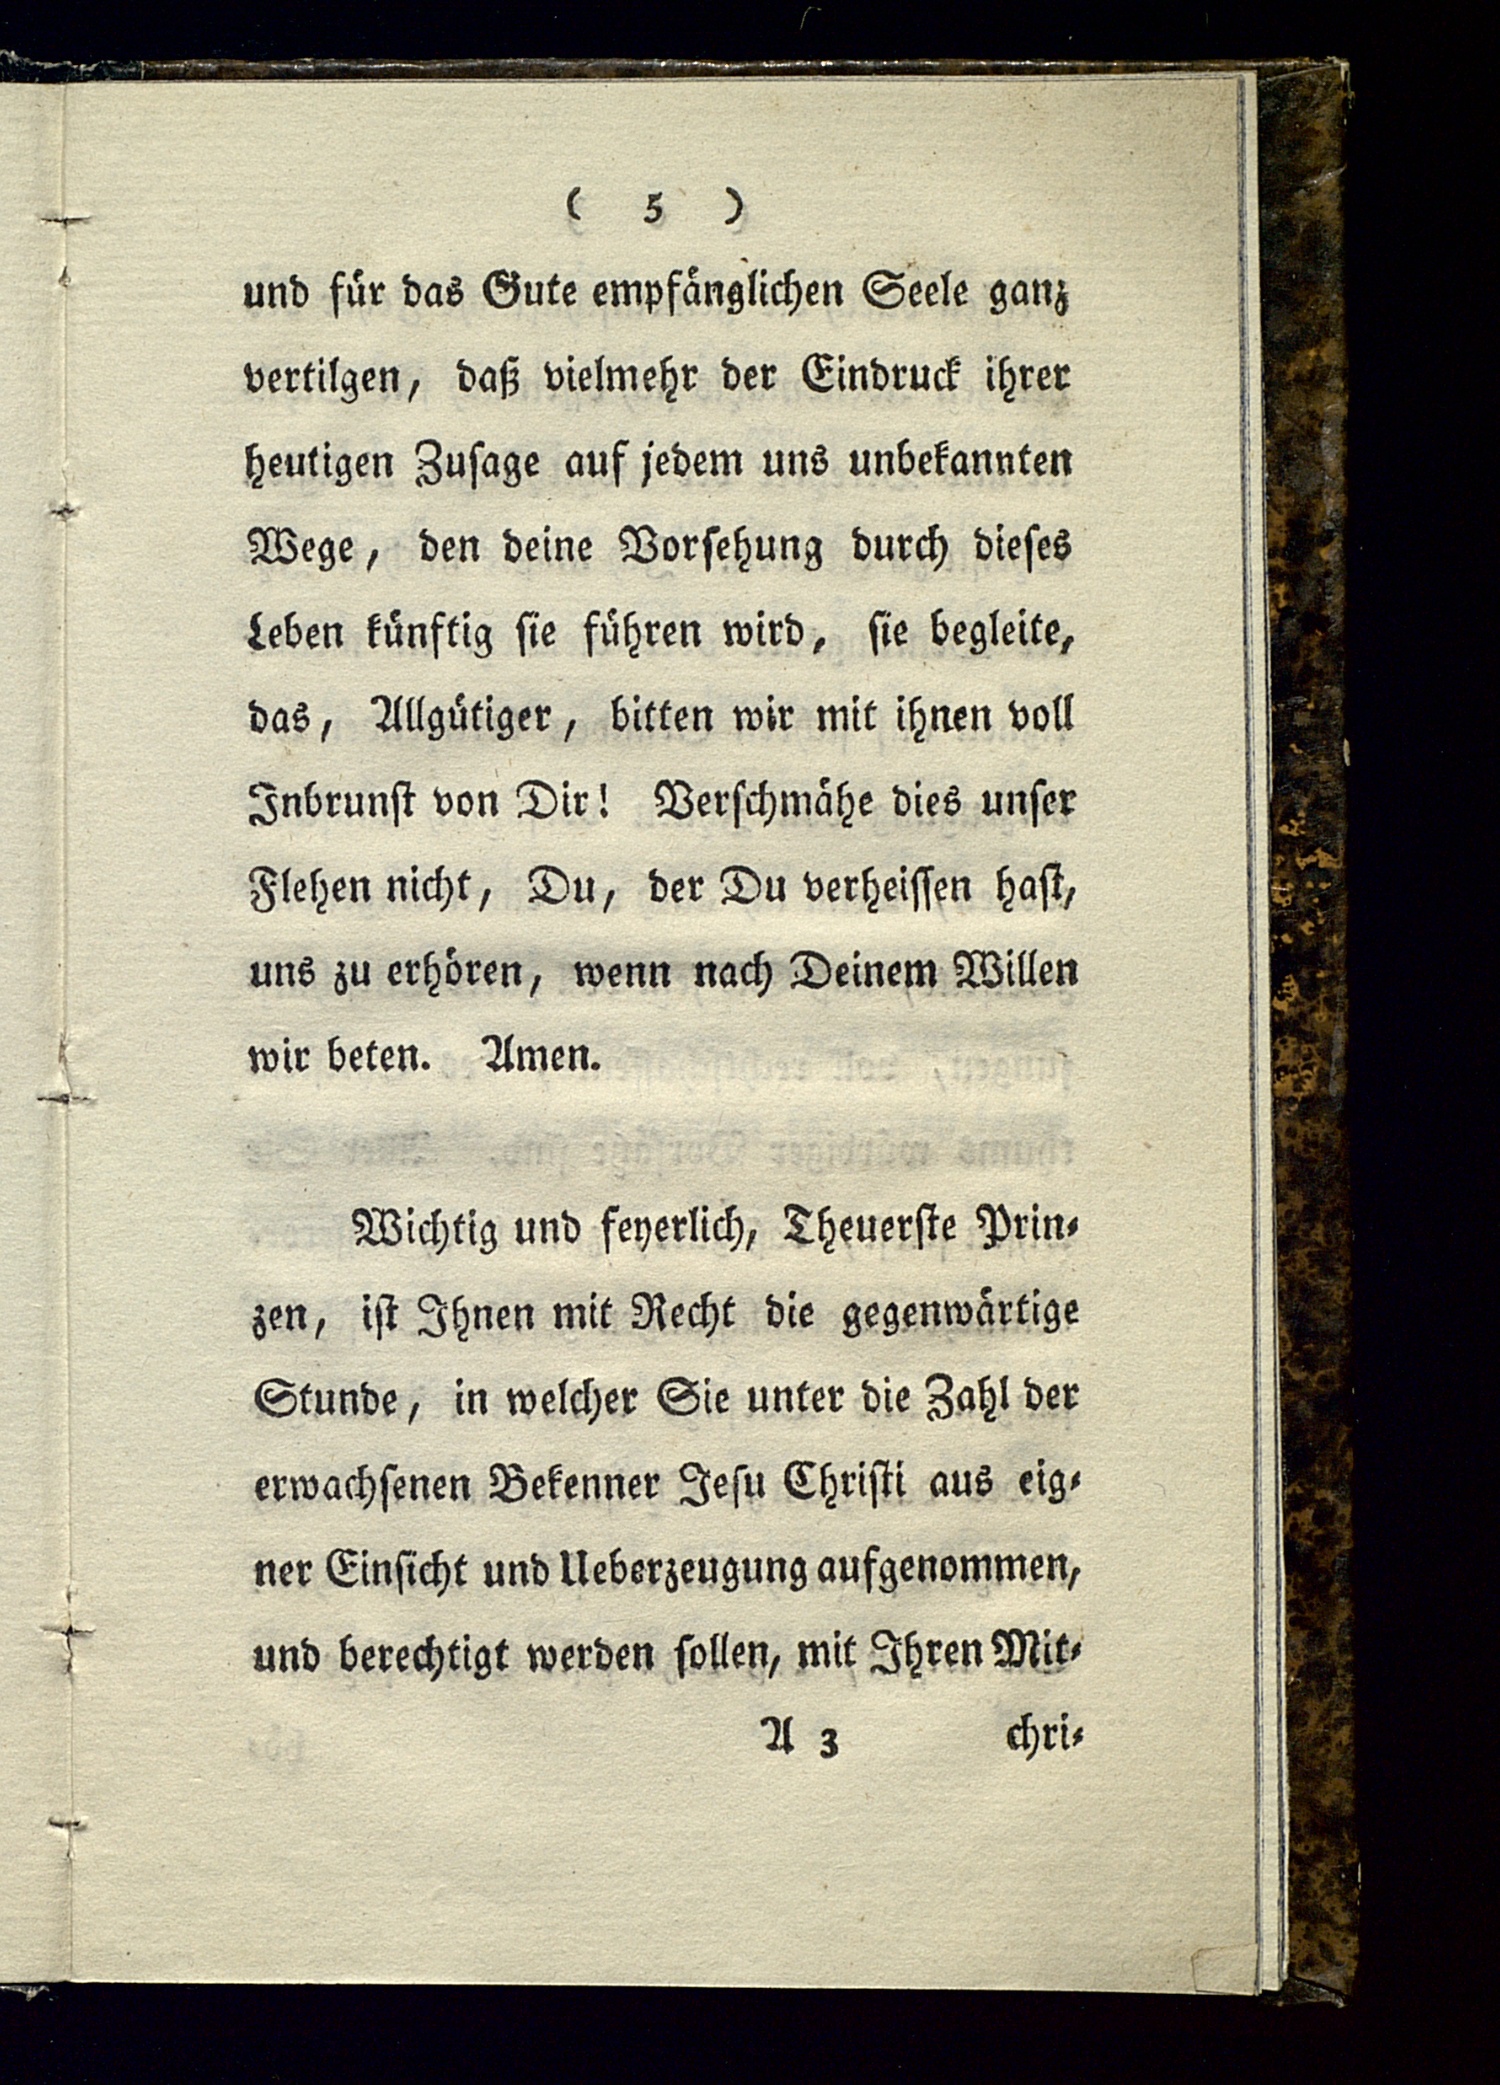 ( 5 )
und für das Gute empfänglichen Seele ganz
vertilgen, daß vielmehr der Eindruck ihrer
heutigen Zusage auf jedem uns unbekannten
Wege, den deine Vorsehung durch dieses
Leben künftig sie führen wird, sie begleite,
das, Allgütiger, bitten wir mit ihnen voll
Inbrunst von Dir! Verschmähe dies unser
Flehen nicht, Du, der Du verheissen hast,
uns zu erhören, wenn nach Deinem Willen
wir beten. Amen.
Wichtig und feyerlich, Theuerste Prin-
zen, ist Ihnen mit Recht die gegenwärtige
Stunde, in welcher Sie unter die Zahl der
erwachsenen Bekenner Jesu Christi aus eig-
ner Einsicht und Ueberzeugung aufgenommen,
und berechtigt werden sollen, mit Ihren Mit-
A 3 chri-